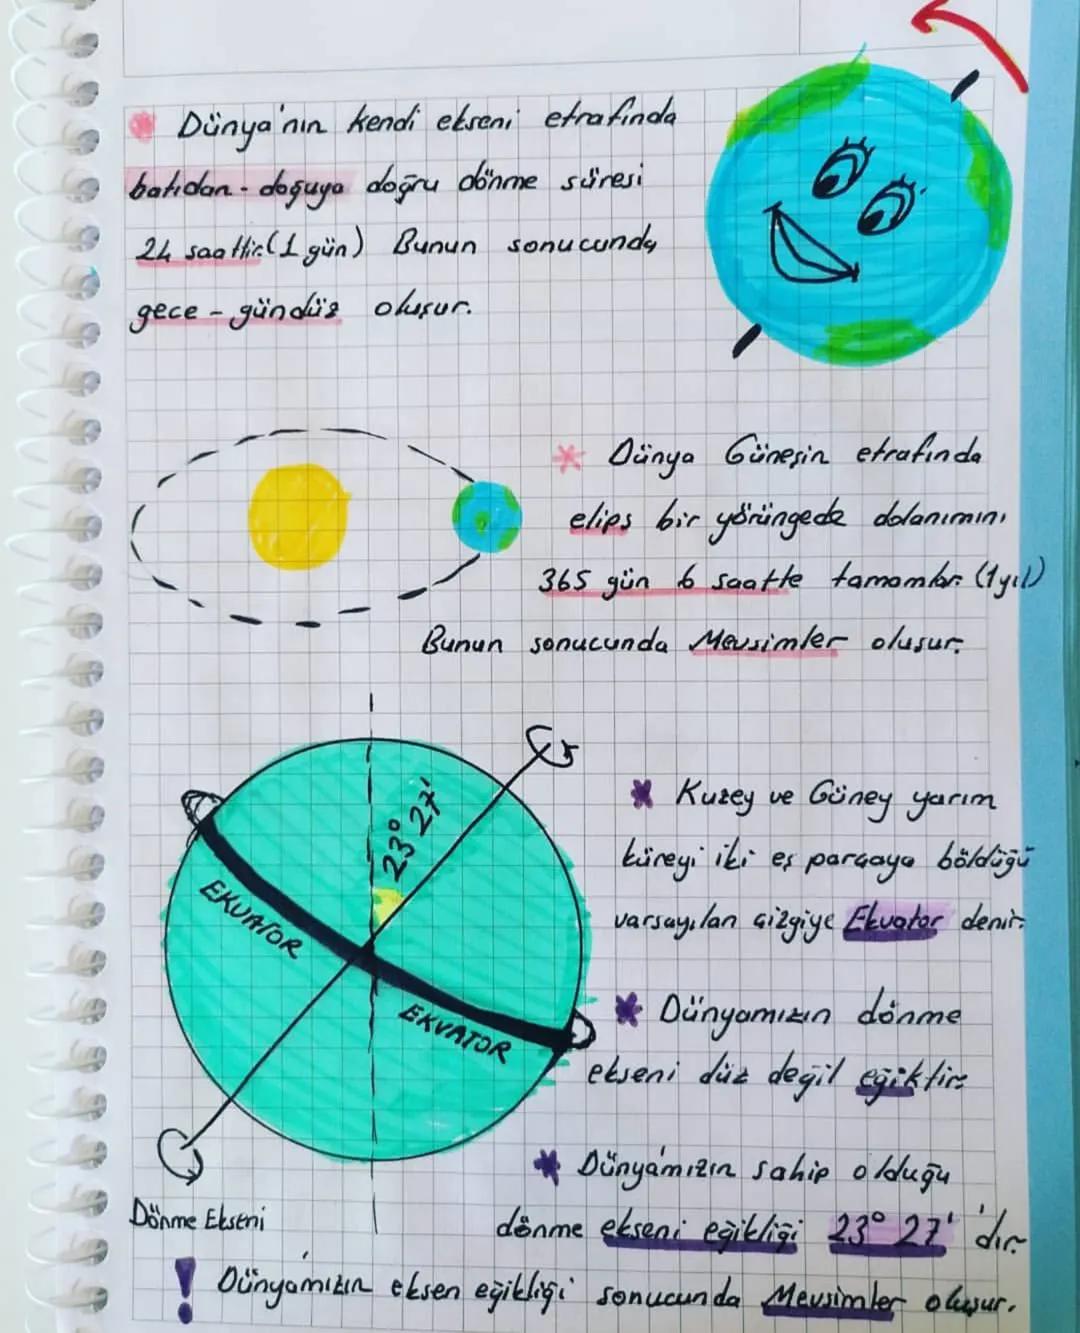 * Dünya'nın kendi ekseni etrafında
batıdan - doğuya doğru dönme süresi
24 saattir. (1 gün) Bunun sonucunda
gece - gündüz oluşur.
* Dünya Güneşin etrafında
elips bir yörüngede dolanımını
365 gün 6 saatte tamamlar. (1yıl)
Bunun sonucunda Mevsimler oluşur.
23° 27'
EKVATOR
EKVATOR
* Kuzey ve Güney yarım
küreyi iki eş parçaya böldüğü
varsayılan çizgiye Ekvator denir.
* Dünyamızın dönme
ekseni düz değil eğiktir.
* Dünyamızın sahip olduğu
dönme ekseni eğikliği 23° 27' 'dır.
Dönme Ekseni
! Dünyamızın eksen eğikliği sonucunda Mevsimler oluşur.